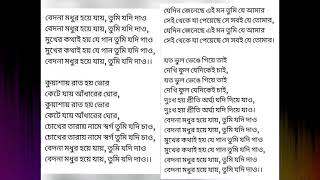 বেদনা মধুর হয়ে যায়, তুমি যদি দাও
বেদনা মধুর হয়ে যায়, তুমি যদি দাও,
মুখের কথাই হয় যে গান তুমি যদি গাও,
বেদনা মধুর হয়ে যায়, তুমি যদি দাও।।
কুয়াশায় রাত হয় ভোর
কেটে যায় আঁধারের ঘোর,
কুয়াশায় রাত হয় ভোর
কেটে যায় আঁধারের ঘোর,
চোখের তারায় নামে স্বর্গ তুমি যদি চাও,
চোখের তারায় নামে স্বর্গ তুমি যদি চাও,
বেদনা মধুর হয়ে যায়, তুমি যদি দাও।।
যেদিন জেনেছে এই মন তুমি যে আমার
সেই থেকে যা পেয়েছে সে সবই যে তোমার।
যেদিন জেনেছে এই মন তুমি যে আমার
সেই থেকে যা পেয়েছে সে সবই যে তোমার।
যত ভুল ভেঙে গিয়ে তাই
দেখি ফুল যেদিকেই চাই,
যত ভুল ভেঙে গিয়ে তাই
দেখি ফুল যেদিকেই চাই,
দুঃখ হয় প্রীতি অর্ঘ্য যদি দিয়ে যাও,
দুঃখ হয় প্রীতি অর্ঘ্য যদি দিয়ে যাও।
বেদনা মধুর হয়ে যায়, তুমি যদি দাও,
মুখের কথাই হয় যে গান তুমি যদি গাও,
বেদনা মধুর হয়ে যায়, তুমি যদি দাও,
বেদনা মধুর হয়ে যায়, তুমি যদি দাও।।